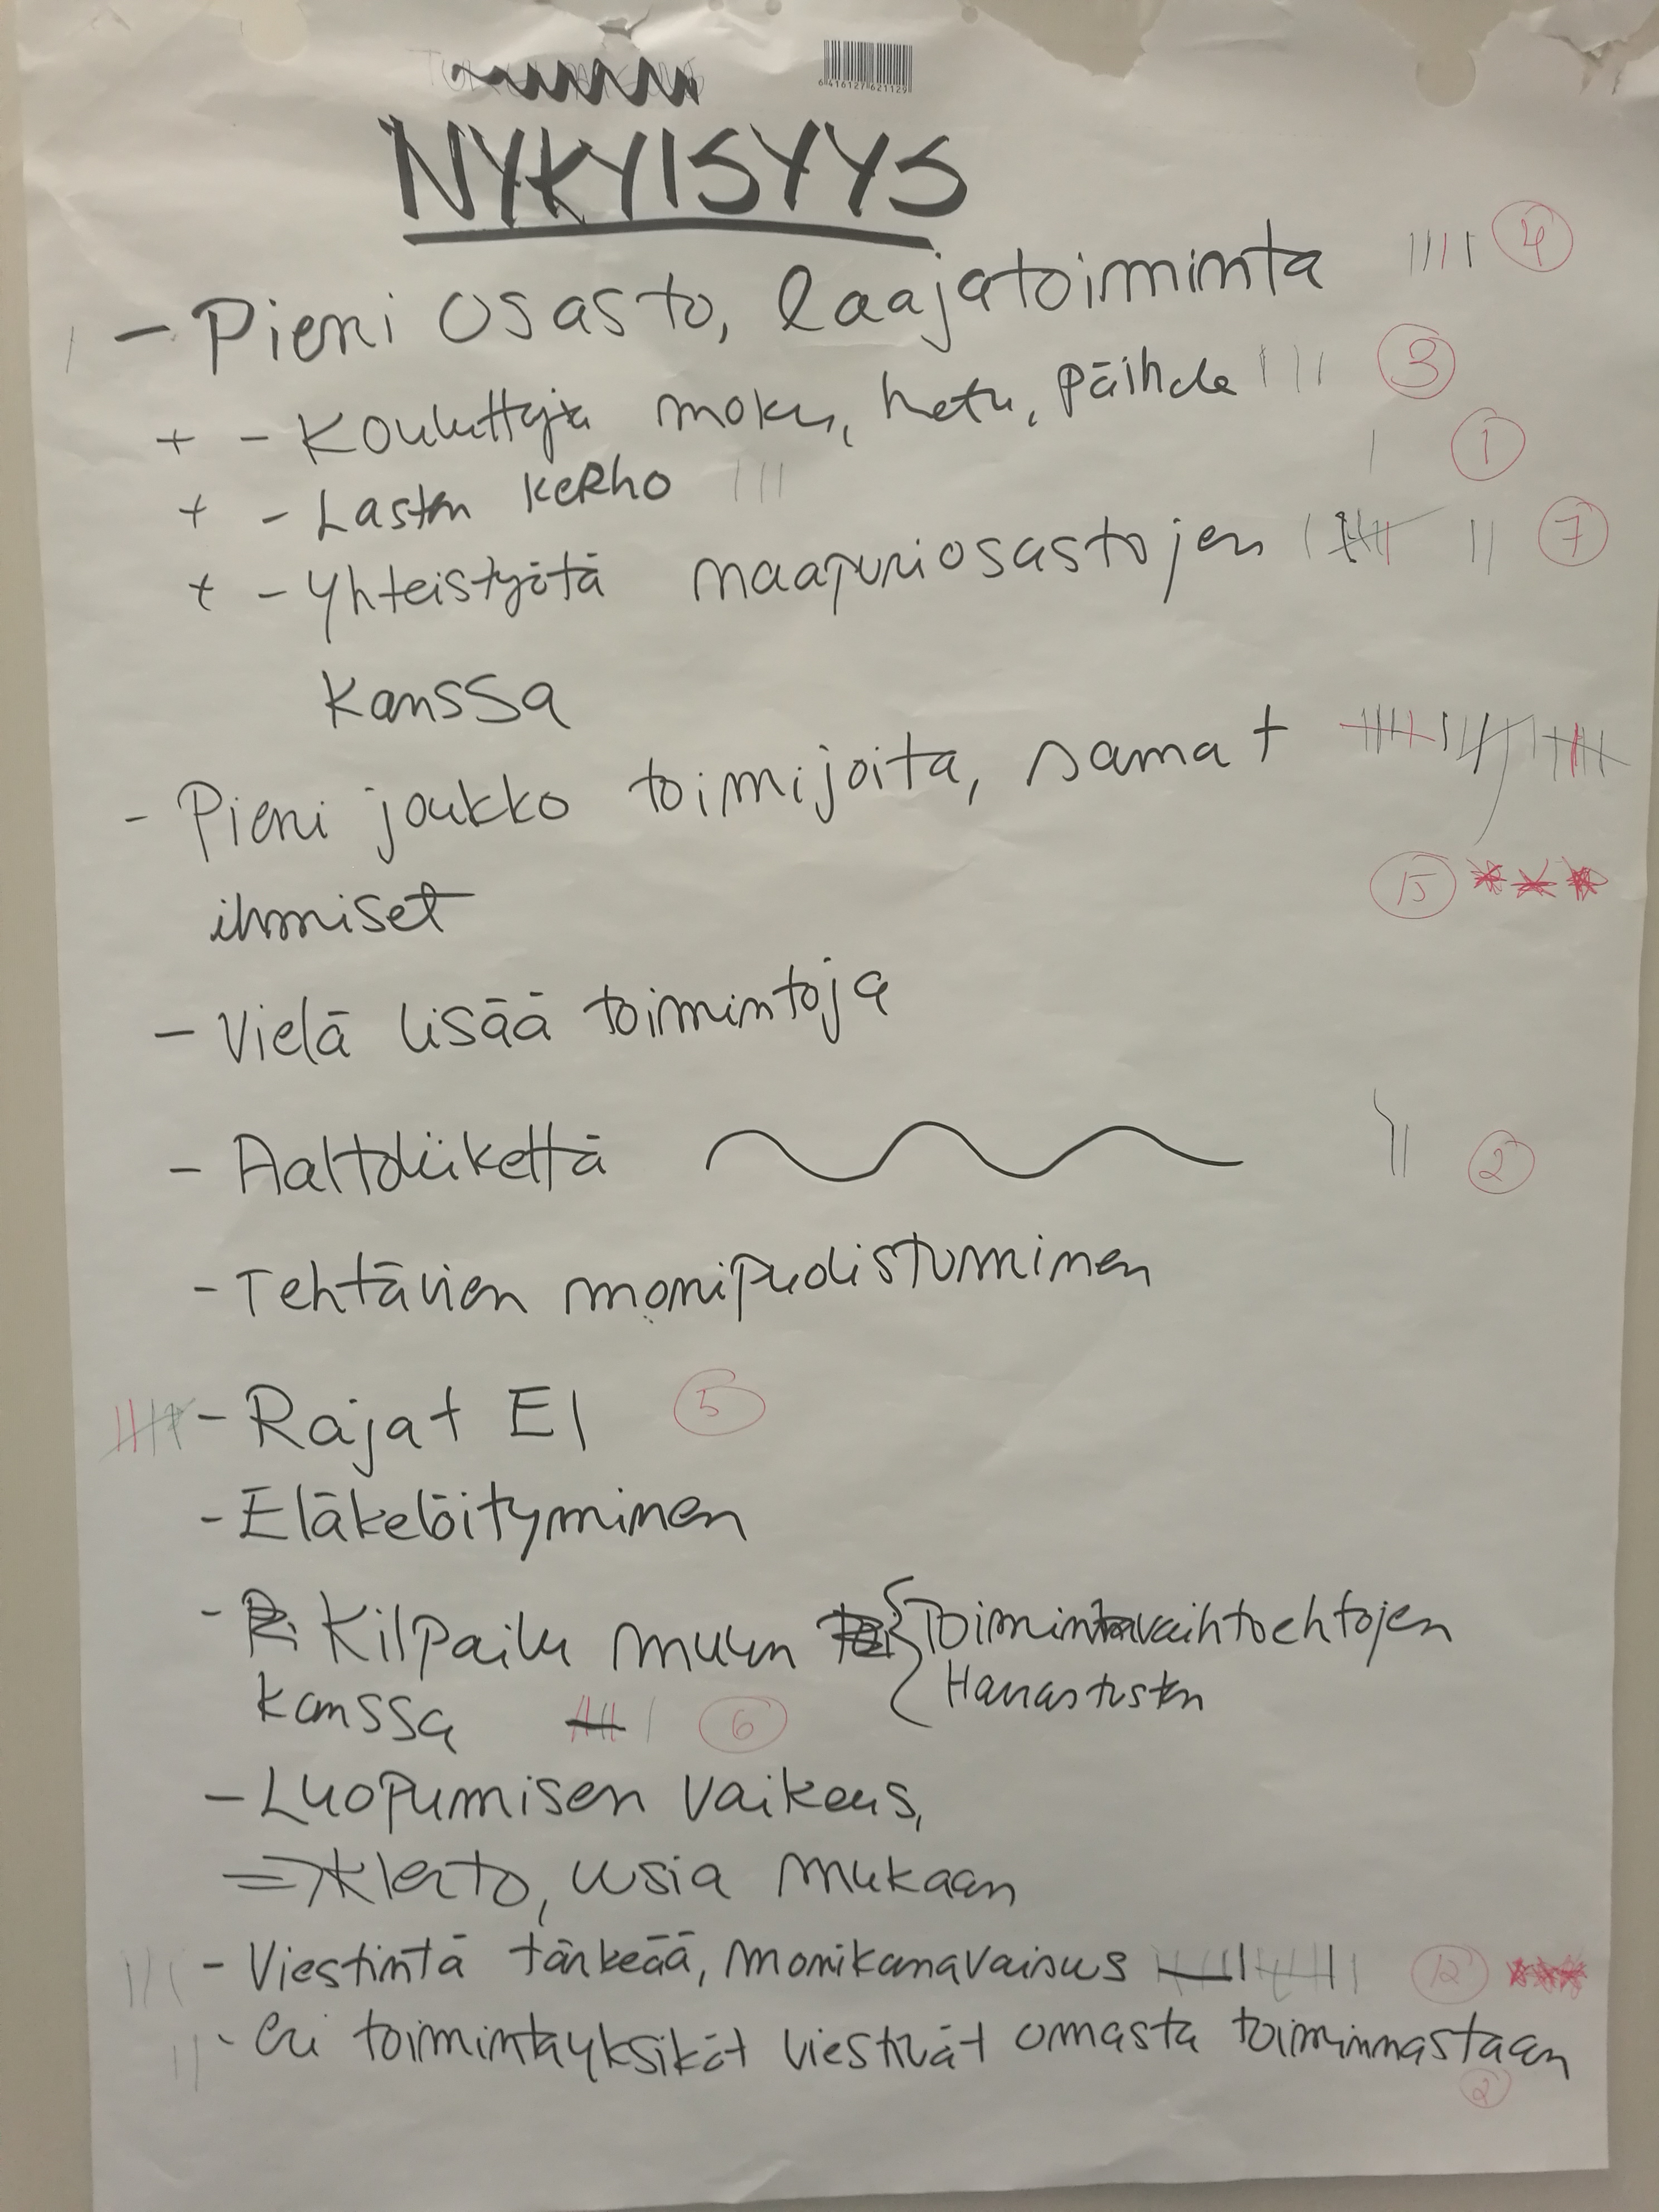 6 416127 621129
NYKYISYYS
- Pieni osasto, laajatoiminta |||| 4
+ - Kouluttajia moku, hetu, päihde ||| 3
+ - Lasten kerho ||| | 1
+ - Yhteistyötä naapuriosastojen 7
kanssa
- Pieni joukko toimijoita, samat
ihmiset 15 ***
- Vielä lisää toimintoja
- Aaltoliikettä || 2
- Tehtävien monipuolistuminen
- Rajat EI 5
- Eläkelöityminen
- Kilpailu muun { Toimintavaihtoehtojen
Harrastusten
kanssa 6
- Luopumisen vaikeus,
=> kierto, uusia mukaan
- Viestintä tärkeää, monikanavaisuus 12 ***
- eri toimintayksiköt viestivät omasta toiminnastaan
2